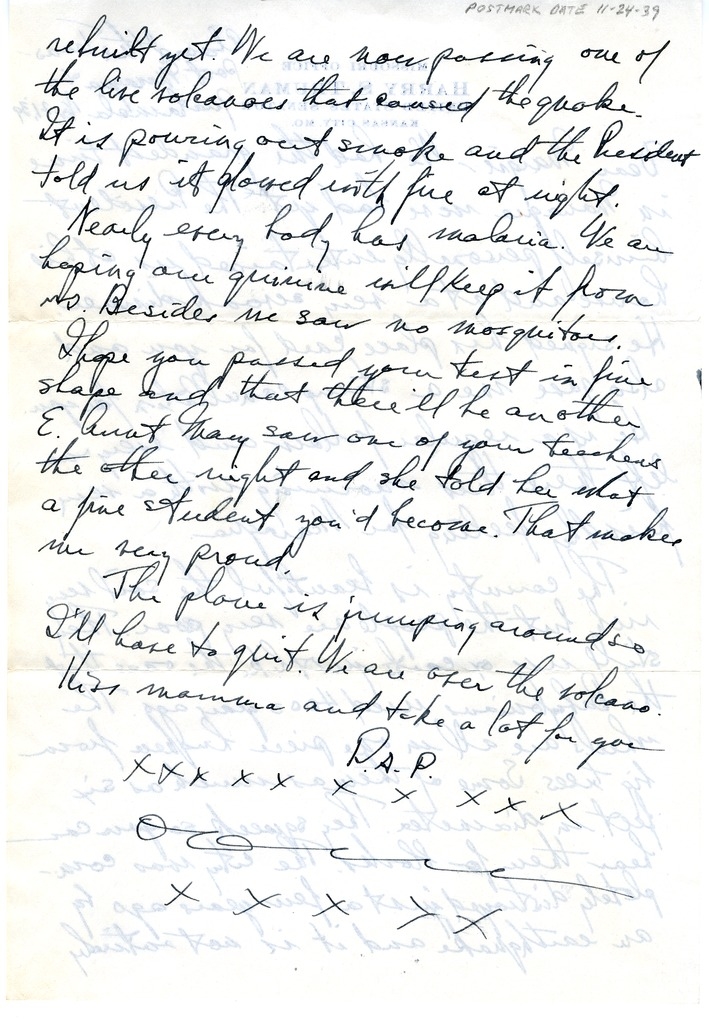 POSTMARK DATE 11-24-39
rebuilt yet. We are now passing one of
the live volcanoes that caused the quake.
It is pouring out smoke and the President
told us it glowed with fire at night.
Nearly every body has malaria. We are
hoping our quinine will keep it from
us. Besides we saw no mosquitoes.
I hope you passed your test in fine
shape and that there'll be another
E. Aunt Mary saw one of your teachers
the other night and she told her what
a fine student you'd become. That makes
me very proud.
The plane is jumping around so
I'll have to quit. We are over the volcano.
Kiss mamma and take a lot for you
D.A.P.
X X X X X X X X X X
X X X X X